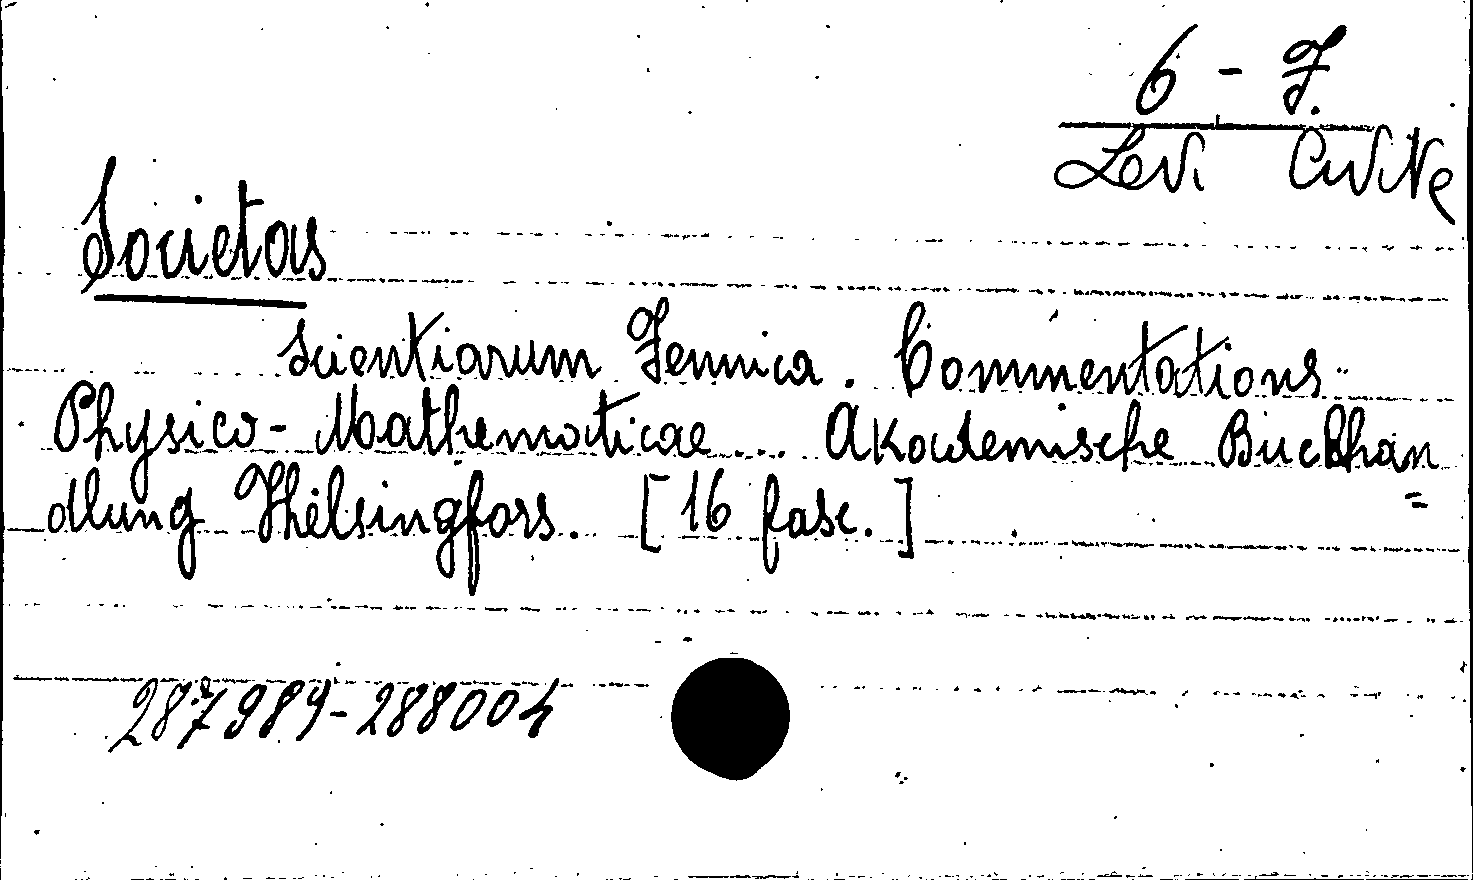 6 - F.
Levi Civita
Societas
scientiarum Fennica. Commentations
Physico-Mathematicae... Akademische Buckhan
dlung Hhelsingfors. [16 fasc.]
287989-288004